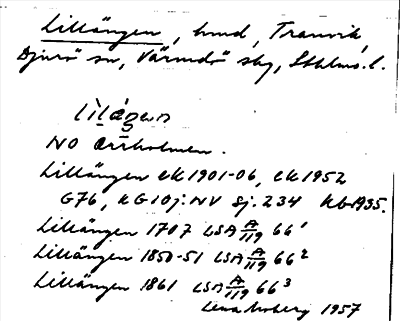 Lillängen, hmd, Tranvik,
Djurö sn, Värmdö skg, Sthlms. l.
lìlǽŋən
NO Ässholmen.
Lillängen ek 1901-06, ek 1952
G76, KG 10j: NV Sj. 234 Kb 1935.
Lillängen 1707 LSA A/119 66¹
Lillängen 1850-51 LSA A/119 66²
Lillängen 1861 LSA A/119 66³
Lena Moberg 1957